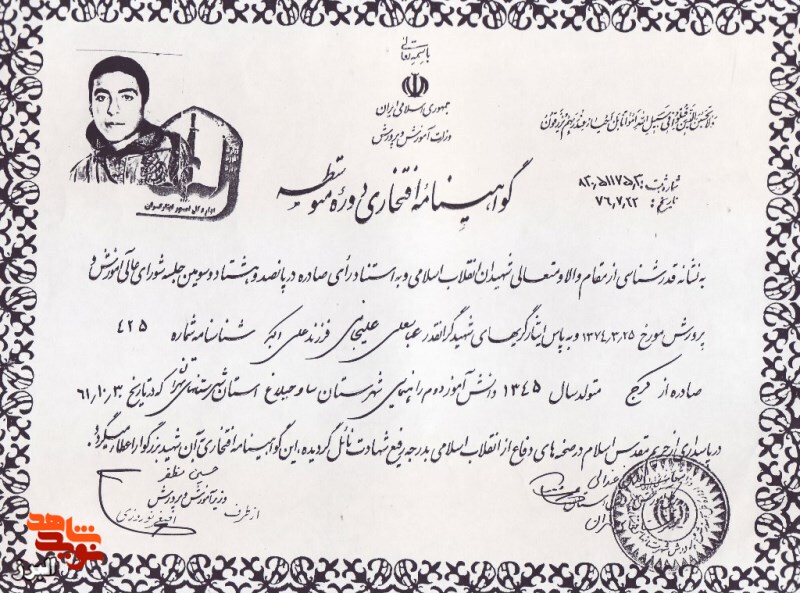 باسمه تعالی
جمهوری اسلامی ایران
وزارت آموزش و پرورش
ولا تحسبن الذین قتلوا فی سبیل الله امواتا بل احیاء عند ربهم یرزقون
شماره ثبت:
تاریخ: ۷۶,۷,۲۲
اداره کل امور ایثارگران
گواهینامه افتخاری دوره متوسطه
به نشانه قدرشناسی از مقام والا و متعالی شهیدان انقلاب اسلامی و به استناد رأی صادره در پانصد و هشتاد و سومین جلسه شورای عالی آموزش و
پرورش مورخ ۱۳۷۴,۳,۲۵ و به پاس ایثارگریهای شهید گرانقدر عباسعلی علیجانی فرزند علی اکبر شناسنامه شماره ۴۲۵
صادره از کرج متولد سال ۱۳۴۵ دانش آموز دوم راهنمایی شهرستان ساوجبلاغ استان شهرستانهای تهران که در تاریخ ۶۱,۱۰,۳۰
در پاسداری از حریم مقدس اسلام در صحنه های دفاع از انقلاب اسلامی به درجه رفیع شهادت نائل گردیده، این گواهینامه افتخاری آن شهید بزرگوار اعطاء میگردد.
حسین مظفر
وزیر آموزش و پرورش
از طرف
نوید شاهد
البرز